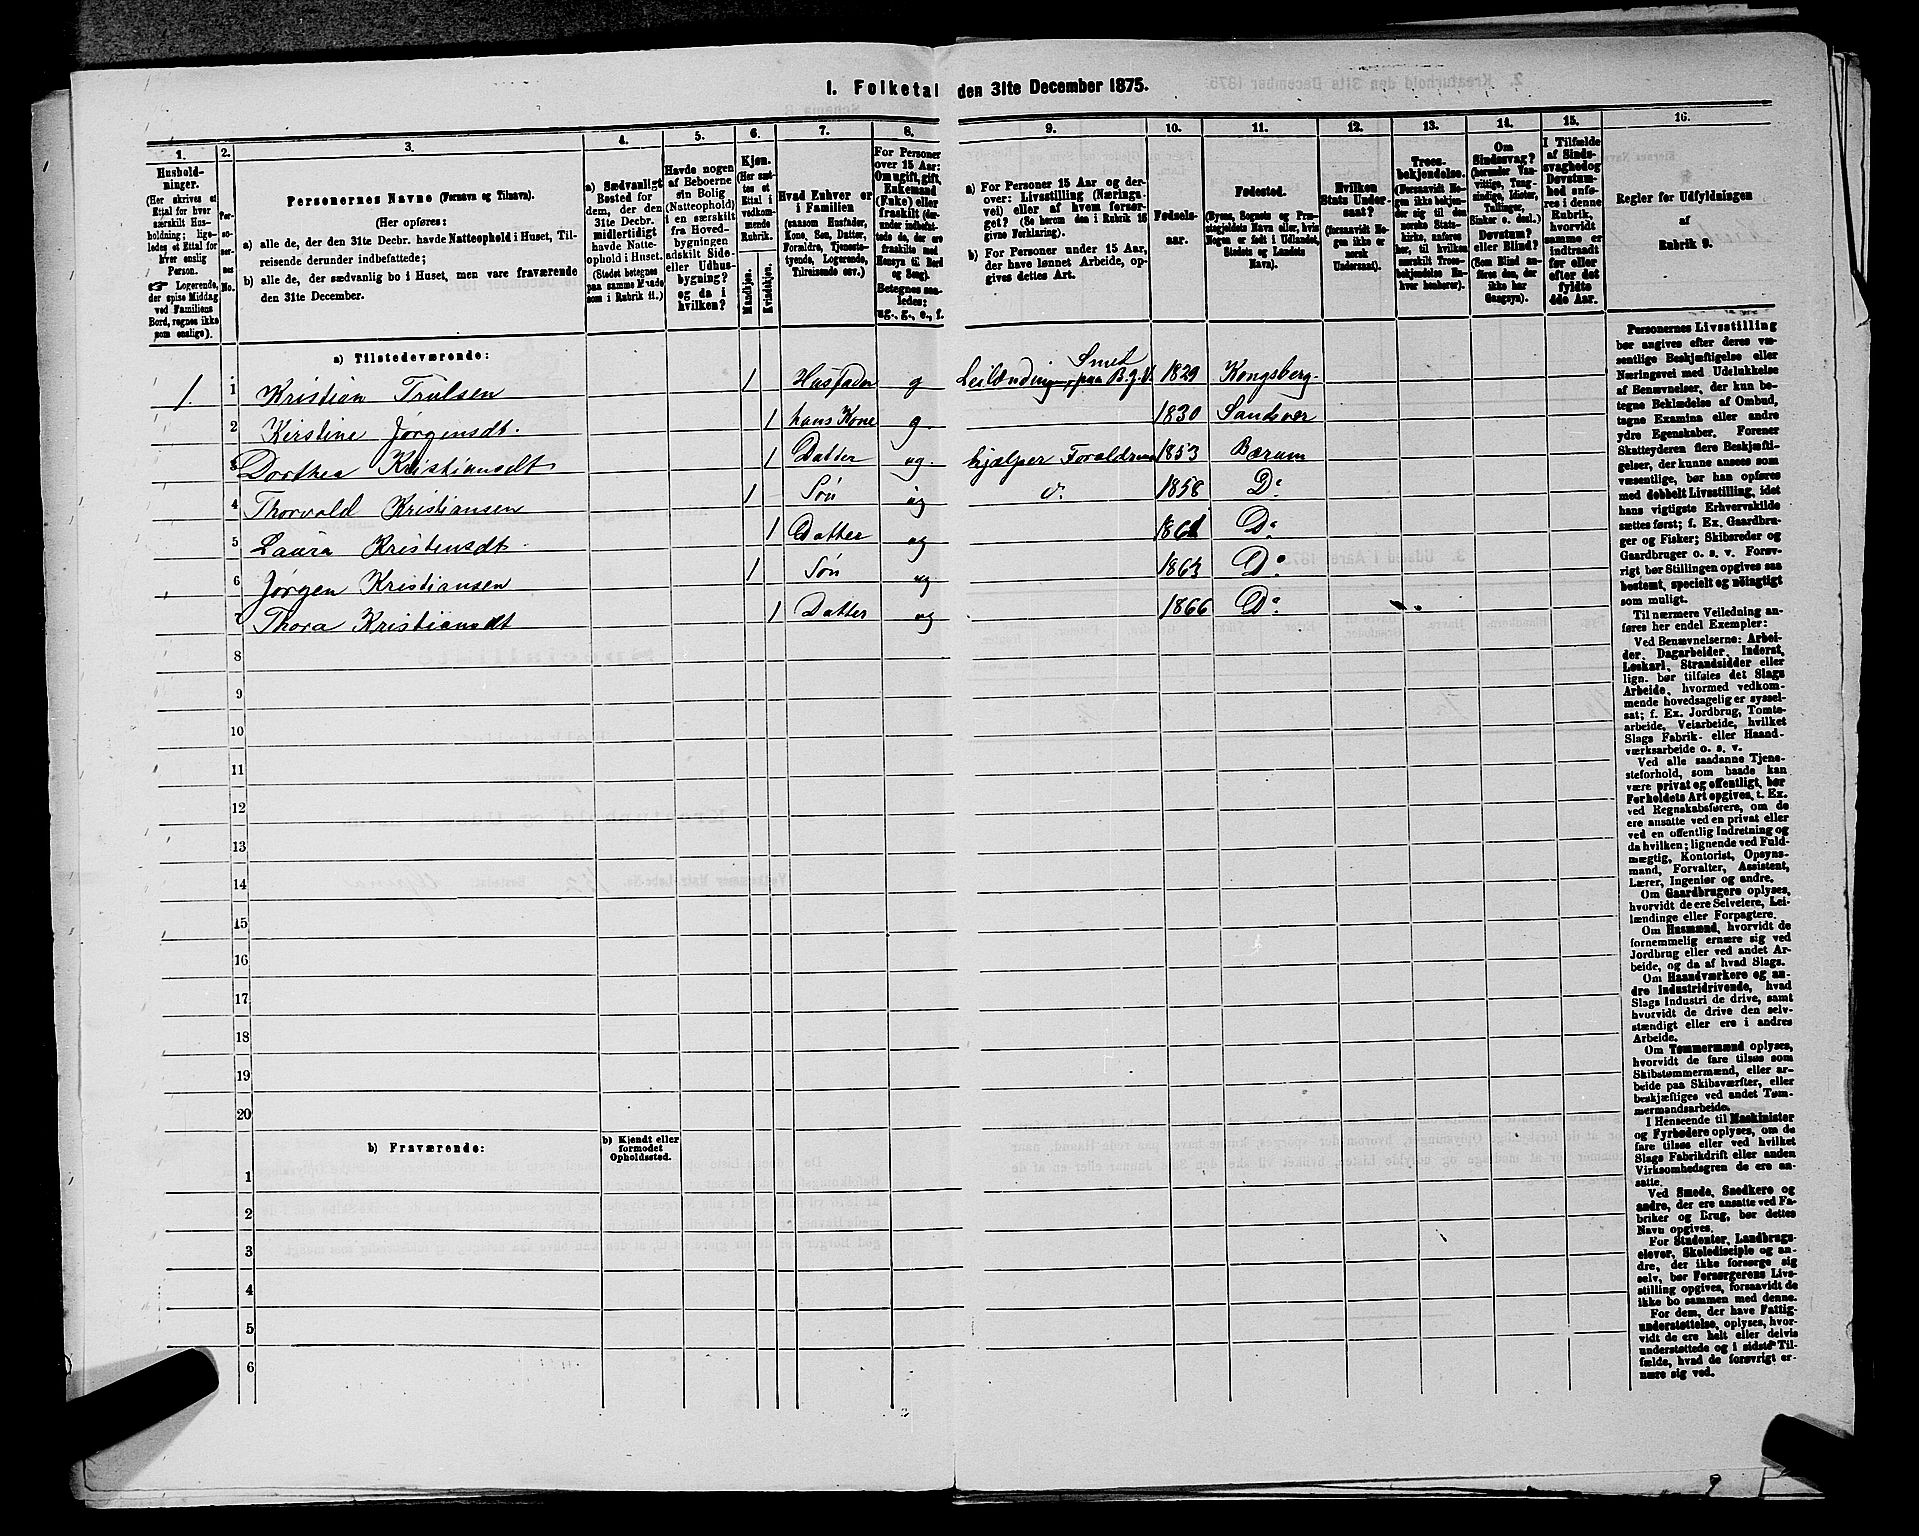 1. Folketal den 31te December 1875.
1. 2. 3. 4. 5. 6. 7. 8. 9. 10. 11. 12. 13. 14. 15. 16.
Husholdninger.
(Her skrives et Ettal for hver særskilt Husholdning; ligeledes et Ettal for hver enslig Person.
☞ Logerende, der spise Middag ved Familiens Bord, regnes ikke som enslige).
Personernes No.
Personernes Navne (Fornavn og Tilnavn).
(Her opføres:
a) alle de, der den 31te Decbr. havde Natteophold i Huset, Tilreisende derunder indbefattede;
b) alle de, der sædvanlig bo i Huset, men vare fraværende den 31te December.
a) Sædvanligt Bosted for dem, der den 31te Decbr. midlertidigt havde Natteophold i Huset.
(Stedet betegnes paa samme Maade som i Rubrik 11.)
Havde nogen af Beboerne sin Bolig (Natteophold) i en særskilt fra Hovedbygningen adskilt Side- eller Udhusbygning? og da i hvilken?
Kjøn.
(Her sættes et Ettal i vedkommende Rubrik.
Mandkjøn.
Kvindekjøn.
Hvad Enhver er i Familien
(saasom Husfader, Kone, Søn, Datter, Forældre, Tjenestetyende, Logerende, Tilreisende osv.)
For Personer over 15 Aar: Om ugift, gift, Enkemand (Enke) eller fraskilt (derunder indbefattede de, der ere fraskilte med Hensyn til Bord og Seng).
Betegnes saaledes:
ug., g., e., f.
a) For Personer 15 Aar og derover: Livsstilling (Næringsvei) eller af hvem forsørget? (Se herom den i Rubrik 16 givne Forklaring).
b) For Personer under 15 Aar, der have lønnet Arbeide, opgives dettes Art.
Fødselsaar.
Fødested.
(Byens, Sognets og Præstegjeldets Navn eller, hvis Nogen er født i Udlandet, Stedets og Landets Navn).
Hvilken Stats Undersaat?
(forsaavidt Nogen ikke er norsk Undersaat).
Troesbekjendelse.
(Forsaavidt Nogen ikke bekjender sig til den norske Statskirke, anføres her, til hvilken særskilt Troesbekjendelse Enhver henhører).
Om Sindssvag? (herunder Vanvittige, Tungsindige, Idioter, Tullinger, Sinker o. desl.)
Døvstum? eller Blind? (Som Blind anføres den, der ikke har Gangsyn).
I Tilfælde af Sindssvaghed og Døvstumhed anføres i denne Rubrik, hvorvidt samme er indtraadt før eller efter det fyldte 4de Aar.
Regler for Udfyldningen af Rubrik 9.
a) Tilstedeværende:
1. 1 Kristian Trulsen 1 Husfader g Leilænding, Smed paa B.g.V. 1829 Kongsberg
2 Kirstine Jørgensdt. 1 hans Kone g. 1830 Sandsver
3 Dorthea Kristiansdt 1 Datter ug. hjælper Forældrene 1853 Bærum
4 Thorvald Kristiansen 1 Søn ug 1858 Do
5 Laura Kristensdt 1 Datter ug 1861 Do
6 Jørgen Kristiansen 1 Søn ug 1863 Do
7 Thora Kristiansdt 1 Datter ug 1866 Do
8
9
10
11
12
13
14
15
16
17
18
19
20
b) Fraværende:
b) Kjendt eller formodet Opholdssted.
1
2
3
4
5
6
Personernes Livsstilling
bør angives efter deres væsentlige Beskjæftigelse eller
Næringsvei med Udelukkelse
af Benævnelser, der kun betegne Beklædelse af Ombud,
tagne Examina eller andre
ydre Egenskaber. Forener
Skatteyderen flere Beskjæftigelser, der kunne ansees som
væsentlige, bør han opføres
med dobbelt Livsstilling, idet
hans vigtigste Erhvervskilde
sættes først; f. Ex. Gaardbruger og Fisker; Skibsreder og
Gaardbruger o. s. v. Forøvrigt bør Stillingen opgives saa
bestemt, specielt og nøiagtigt
som muligt.
Til nærmere Veiledning anføres her endel Exempler:
Ved Benævnelserne: Arbeider, Dagarbeider, Inderst,
Løskarl, Strandsidder eller
lign. bør tilføies det Slags
Arbeide, hvormed vedkommende hovedsagelig er sysselsat; f. Ex. Jordbrug, Tomtearbeide, Veiarbeide, hvilket
Slags Fabrik- eller Haandværksarbeide o. s. v.
Ved alle saadanne Tjenesteforhold, som baade kan
være privat og offentligt, bør
Forholdets Art opgives, t. Ex.
ved Regnskabsførere, om de
ere ansatte ved en privat eller
ved en offentlig Indretning og
da hvilken; lignende ved Fuldmægtig, Kontorist, Opsynsmand, Forvalter, Assistent,
Lærer, Ingeniør og andre.
Om Gaardbrugere oplyses,
hvorvidt de ere Selveiere, Leilændinge eller Forpagtere.
Om Husmænd, hvorvidt de
fornemmelig ernære sig ved
Jordbrug eller ved andet Arbeide, og da af hvad Slags.
Om Haandværkere og andre Industridrivende, hvad
Slags Industri de drive, samt
hvorvidt de drive den selvstændigt eller ere i andres
Arbeide.
Om Tømmermænd oplyses,
hvorvidt de fare tilsøs som
Skibstømmermænd, eller arbeide paa Skibsværfter, eller
beskjæftiges ved andet Tømmermandsarbeide.
I Henseende til Maskinister
og Fyrbødere oplyses, om de
fare tilsøs eller ved hvilket
Slags Fabrikdrift eller anden
Virksomhedsgren de ere ansatte.
Ved Smede, Snedkere og
andre, der ere ansatte ved Fabriker og Brug, bør dettes
Navn opgives.
For Studenter, Landbrugselever, Skoledisciple og andre, der ikke forsørge sig
selv, bør Forsørgerens Livsstilling opgives, forsaavidt de
ikke bo sammen med denne.
For dem, der have Fattigunderstøttelse, oplyses, hvorvidt de ere helt eller delvis
understøttede og i sidste Tilfælde, hvad de forøvrigt ernære sig ved.